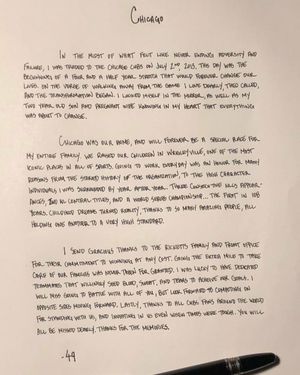 CHICAGO
IN THE MIDST OF WHAT FELT LIKE NEVER ENDING ADVERSITY AND
FAILURE, I WAS TRADED TO THE CHICAGO CUBS ON JULY 2ND, 2013. THIS DAY WAS THE
BEGINNING OF A FOUR AND A HALF YEAR STRETCH THAT WOULD FOREVER CHANGE OUR
LIVES. ON THE VERGE OF WALKING AWAY FROM THE GAME I LOVE DEARLY, THEO CALLED,
AND THE TRANSFORMATION BEGAN. I LOOKED MYSELF IN THE MIRROR, AS WELL AS MY
TWO YEAR OLD SON AND PREGNANT WIFE KNOWING IN MY HEART THAT EVERYTHING
WAS ABOUT TO CHANGE.
CHICAGO WAS OUR HOME, AND WILL FOREVER BE A SPECIAL PLACE FOR
MY ENTIRE FAMILY. WE RAISED OUR CHILDREN IN WRIGLEYVILLE, ONE OF THE MOST
ICONIC PLACES IN ALL OF SPORTS. GOING TO WORK EVERYDAY WAS AN HONOR FOR MANY
REASONS FROM THE STORIED HISTORY OF THE ORGANIZATION, TO THE HIGH CHARACTER
INDIVIDUALS I WAS SURROUNDED BY YEAR AFTER YEAR. THREE CONSECUTIVE NLCS APPEAR-
ANCES, TWO NL CENTRAL TITLES, AND A WORLD SERIES CHAMPIONSHIP... THE FIRST IN 108
YEARS. CHILDHOOD DREAMS TURNED REALITY, THANKS TO SO MANY AMAZING PEOPLE, ALL
HOLDING ONE ANOTHER TO A VERY HIGH STANDARD.
I SEND GRACIOUS THANKS TO THE RICKETTS FAMILY AND FRONT OFFICE
FOR THEIR COMMITMENT TO WINNING AT ANY COST. GOING THE EXTRA MILE TO TAKE
CARE OF OUR FAMILIES WAS NEVER TAKEN FOR GRANTED. I WAS LUCKY TO HAVE DEDICATED
TEAMMATES THAT WILLINGLY SHED BLOOD, SWEAT, AND TEARS TO ACHIEVE OUR GOALS. I
WILL MISS GOING TO BATTLE WITH ALL OF YOU, BUT LOOK FORWARD TO COMPETING ON
OPPOSITE SIDES MOVING FORWARD. LASTLY, THANKS TO ALL CUBS FANS AROUND THE WORLD
FOR STANDING WITH US, AND SUPPORTING US EVEN WHEN TIMES WERE TOUGH. YOU WILL
ALL BE MISSED DEARLY. THANKS FOR THE MEMORIES.
-49